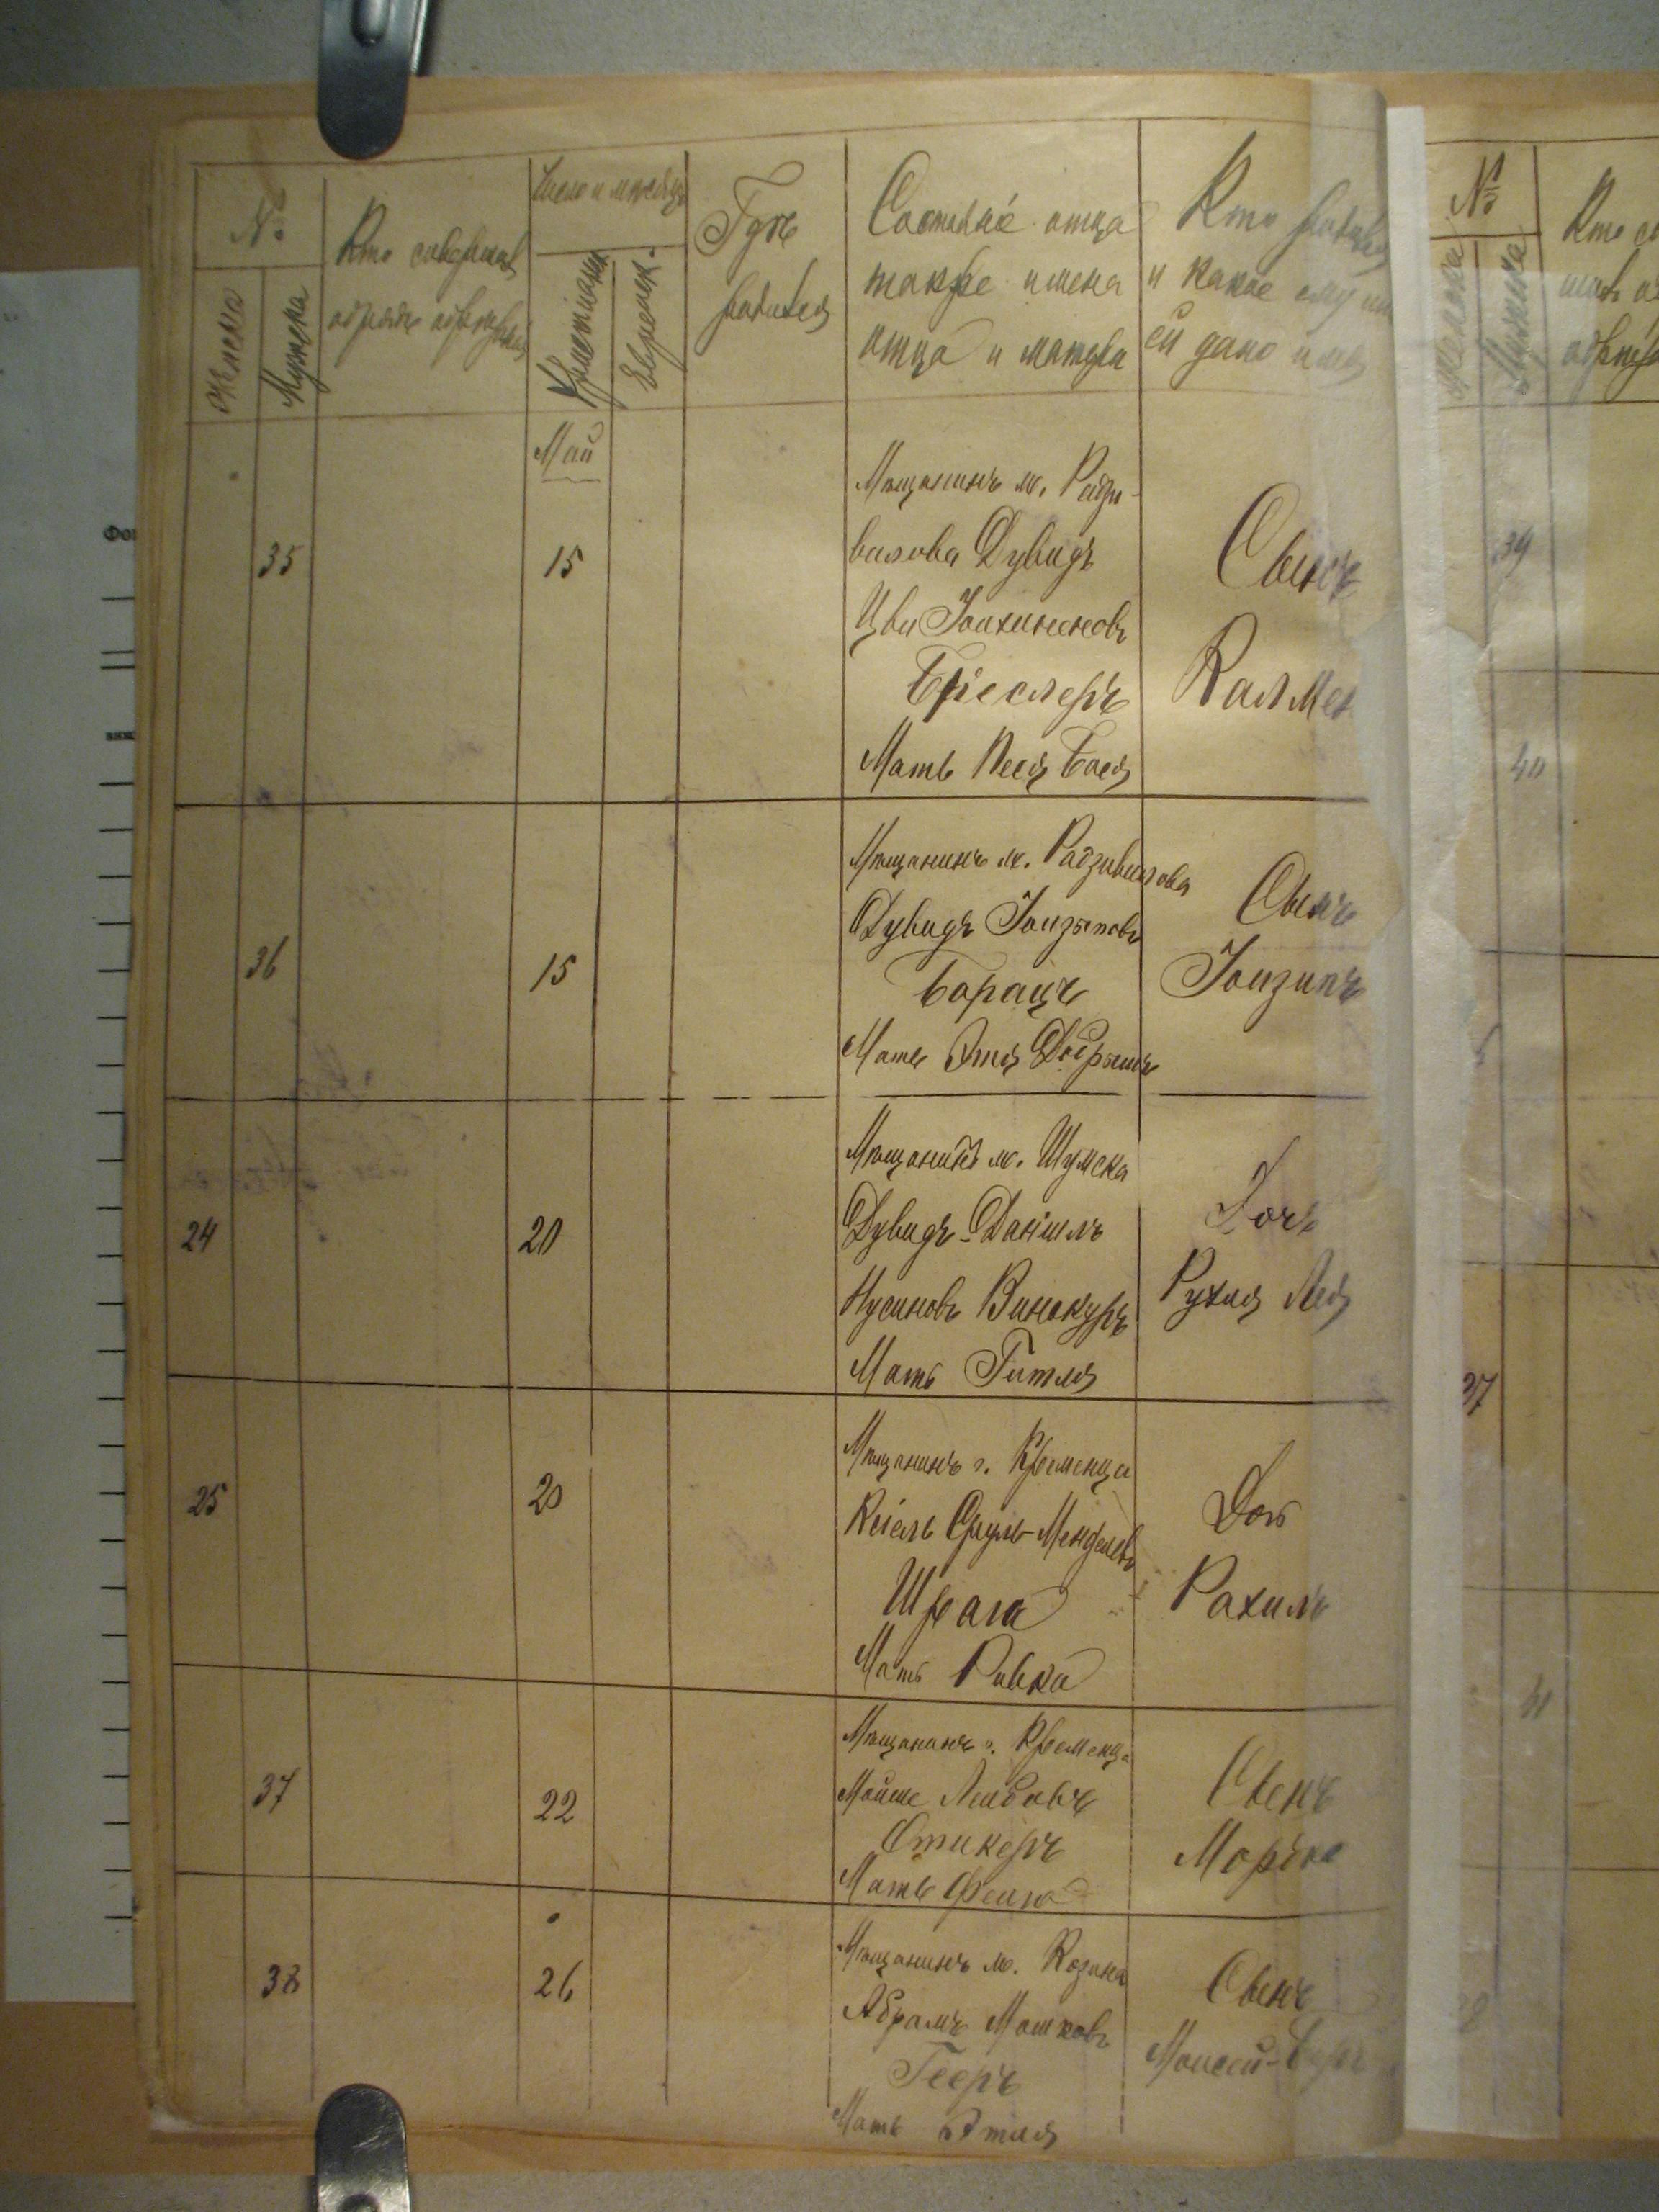 №
Женска
Мужеска
Кто совершал
обряд обрезанія
Число и месяцъ
Христіанск
Еврейск.
Где
родился
Состояніе отца
также имена
отца и матери
Кто родился
и какое ему или
ей дано имя
Май
35
15
Мѣщанинъ м. Радзи-
вилова Дувидъ
Цви
Бреслеръ
Мать Песя Бася
Сынъ
Калмен
36
15
Мѣщанинъ м. Радзивилова
Дувидъ Іоизыповъ
Борацъ
Мать Этя Добрышъ
Сынъ
Іоизипъ
24
20
Мѣщанинъ м. Шумска
Дувидъ-Даніилъ
Нусиновъ Винокуръ
Мать Гитля
Дочь
Рухля Лея
25
20
Мѣщанинъ г. Кременца
Срулъ-Менделевъ
Шрага
Мать Ривка
Дочь
Рахиль
37
22
Мѣщанинъ г. Кременца
Мойше Лейбовъ
Стикеръ
Мать Фейга
Сынъ
38
26
Мѣщанинъ м. Козина
Абрамъ Мошковъ
Гееръ
Мать Этля
Сынъ
Моисей-Беръ
№
Женска
Мужеска
Кто со
39
40
37
41
Фо